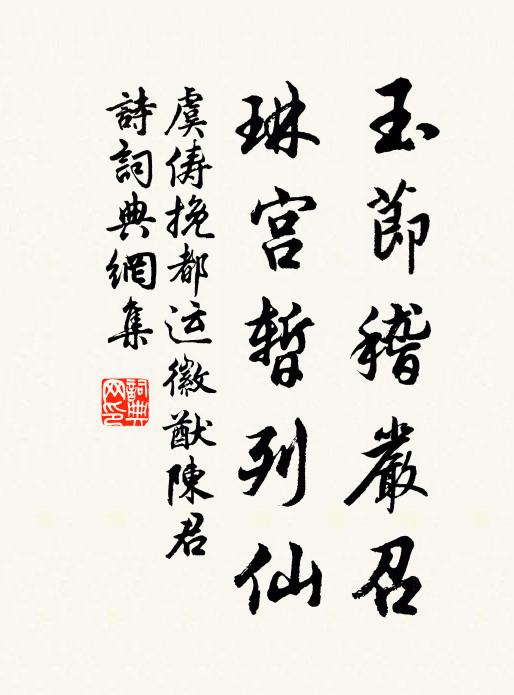 玉節稽嚴召
琳宮暫列仙
虞儔挽都运徽猷陳君
詩詞典網集
詞典网印